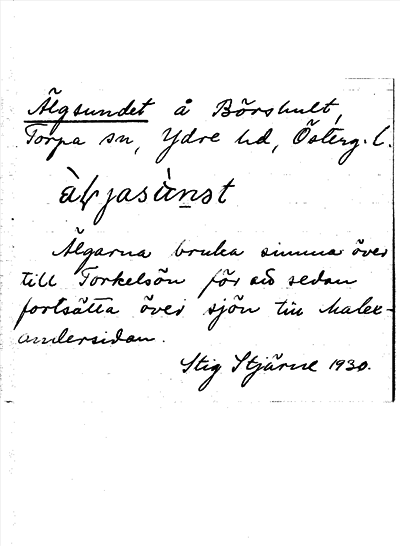 Älgsundet å Börshult,
Torpa sn, Ydre hd, Österg. l.
àɫjasùnət
Älgarna bruka simma över
till Torkelsön för att sedan
fortsätta över sjön till Malex-
andersidan.
Stig Stjärne 1930.